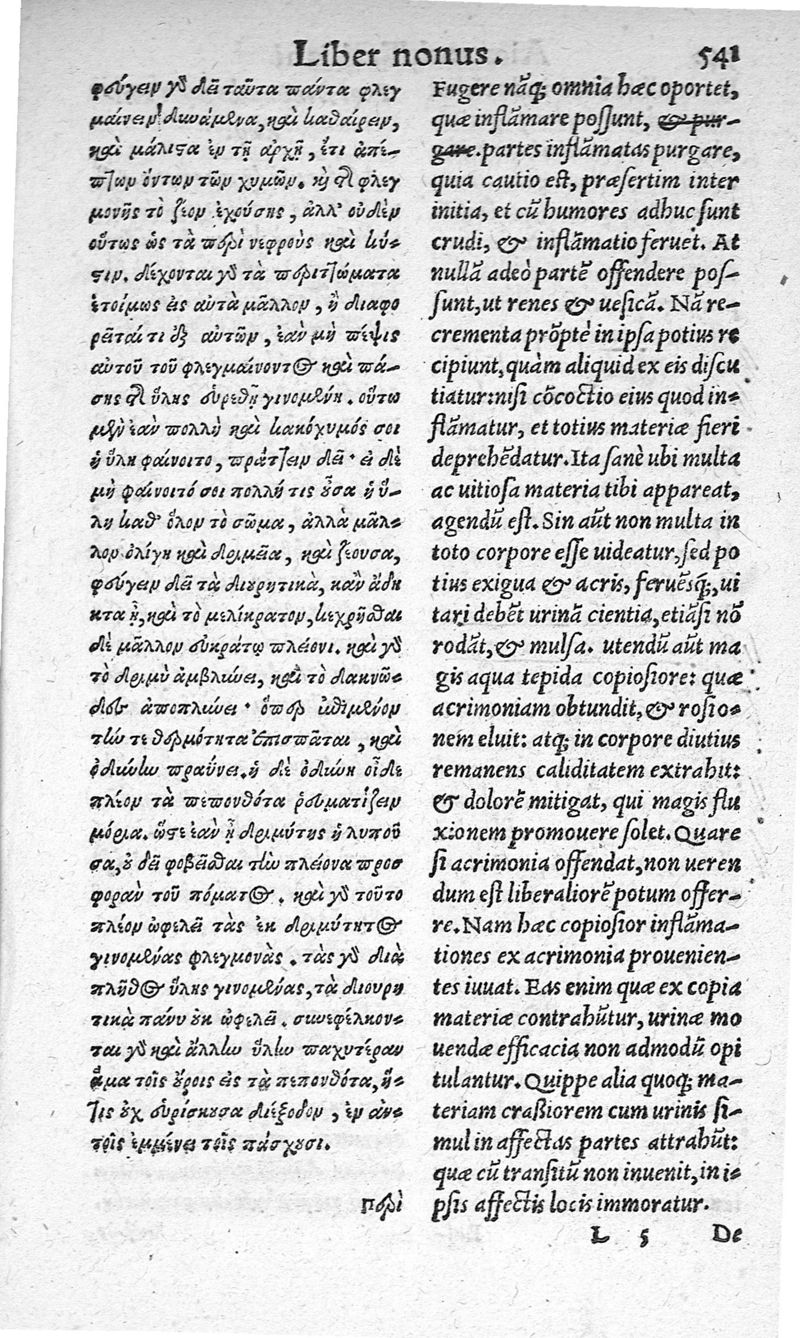 Liber nonus. 541
φεύγειν γὸ δεῖ ταῦτα πάντα φλεγ
μαίνειν δυνάμενα, καὶ καθαίρειν,
καὶ μάλιϛα ἐν τῇ ἀρχῇ, ἔτι ἀπέ-
πτων ὄντων τῶν χυμῶν. καὶ τῆς φλεγ
μονῆς τὸ ζέον ἐχούσης, ἀλλ' οὐδὲν
οὕτως ὡς τὰ περὶ νεφροὺς καὶ κύ-
ϛιν. δέχονται γὸ τὰ περιττώματα
ἑτοίμως εἰς αὐτὰ μᾶλλον, ἢ διαφο
ρεῖται τι ἐξ αὐτῶν, ἐὰν μὴ πέψις
αὐτοῦ τοῦ φλεγμαίνοντος καὶ πά-
σης τῆς ὕλης εὑρεθῇ γινομένη. οὕτω
μὲν ἐὰν πολλὴ καὶ κακόχυμός σοι
ἡ ὕλη φαίνοιτο, πράττειν δεῖ· εἰ δὲ
μὴ φαίνοιτό σοι πολλή τις οὖσα ἡ ὕ-
λη καθ' ὅλον τὸ σῶμα, ἀλλὰ μᾶλ-
λον ὀλίγη καὶ δριμεῖα, καὶ ζέουσα,
φεύγειν δεῖ τὰ διουρητικὰ, κᾂν ἄδη
κτα ᾖ, καὶ τὸ μελίκρατον, κεχρῆσθαι
δὲ μᾶλλον εὐκράτῳ πλείονι. καὶ γὸ
τὸ δριμὺ ἀμβλύνει, καὶ τὸ δακνῶ-
δες ἀποπλύνει· ὅπερ καθήμενον
τήν τε θερμότητα ἐπισπᾶται, καὶ
ὀδύνην πραΰνει. ἡ δὲ ὀδύνη οἶδε
πλέον τὰ πεπονθότα ῥευματίζειν
μόρια. ὥϛε ἐὰν ᾖ δριμύτης ἡ λυποῦ
σα, οὐ δεῖ φοβεῖσθαι τὴν πλείονα προσ
φορὰν τοῦ πόματος. καὶ γὸ τοῦτο
πλέον ὠφελεῖ τὰς ἐκ δριμύτητος
γινομένας φλεγμονάς. τὰς γὸ διὰ
πλῆθος ὕλης γινομένας, τὰ διουρη
τικὰ πάνυ οὐκ ὠφελεῖ. συνεφέλκον-
ται γὸ καὶ ἄλλην ὕλην παχυτέραν
ἅμα τοῖς οὔροις εἰς τὰ πεπονθότα, ἥ-
τις οὐχ εὑρίσκουσα διέξοδον, ἐν αὐ-
τοῖς ἐμμένει τοῖς πάσχουσι.
περὶ
Fugere nãq; omnia hæc oportet,
quæ inflãmare possunt, & pur-
gare. partes inflãmatas purgare,
quia cautio est, præsertim inter
initia, et cũ humores adhuc sunt
crudi, & inflãmatio feruet. At
nullã adeò partẽ offendere pos-
sunt, ut renes & uesicã. Nã re-
crementa prõptè in ipsa potius re
cipiunt, quàm aliquid ex eis discu
tiatur: nisi cõcoctio eius quod in-
flãmatur, et totius materiæ fieri
deprehẽdatur. Ita sanè ubi multa
ac uitiosa materia tibi appareat,
agendũ est. Sin aũt non multa in
toto corpore esse uideatur, sed po
tius exigua & acris, feruẽsq;, ui
tari debẽt urinã cientia, etiãsi nõ
rodãt, & mulsa. utendũ aũt ma
gis aqua tepida copiosiore: quæ
acrimoniam obtundit, & rosio-
nem eluit: atq; in corpore diutius
remanens caliditatem extrahit:
& dolorẽ mitigat, qui magis flu
xionem promouere solet. Quare
si acrimonia offendat, non ueren
dum est liberaliorẽ potum offer-
re. Nam hæc copiosior inflãma-
tiones ex acrimonia prouenien-
tes iuuat. Eas enim quæ ex copia
materiæ contrahũtur, urinæ mo
uendæ efficacia non admodũ opi
tulantur. Quippe alia quoq; ma-
teriam crassiorem cum urinis si-
mul in affectas partes attrahũt:
quæ cũ transitũ non inuenit, in i-
psis affectis locis immoratur.
L 5 De